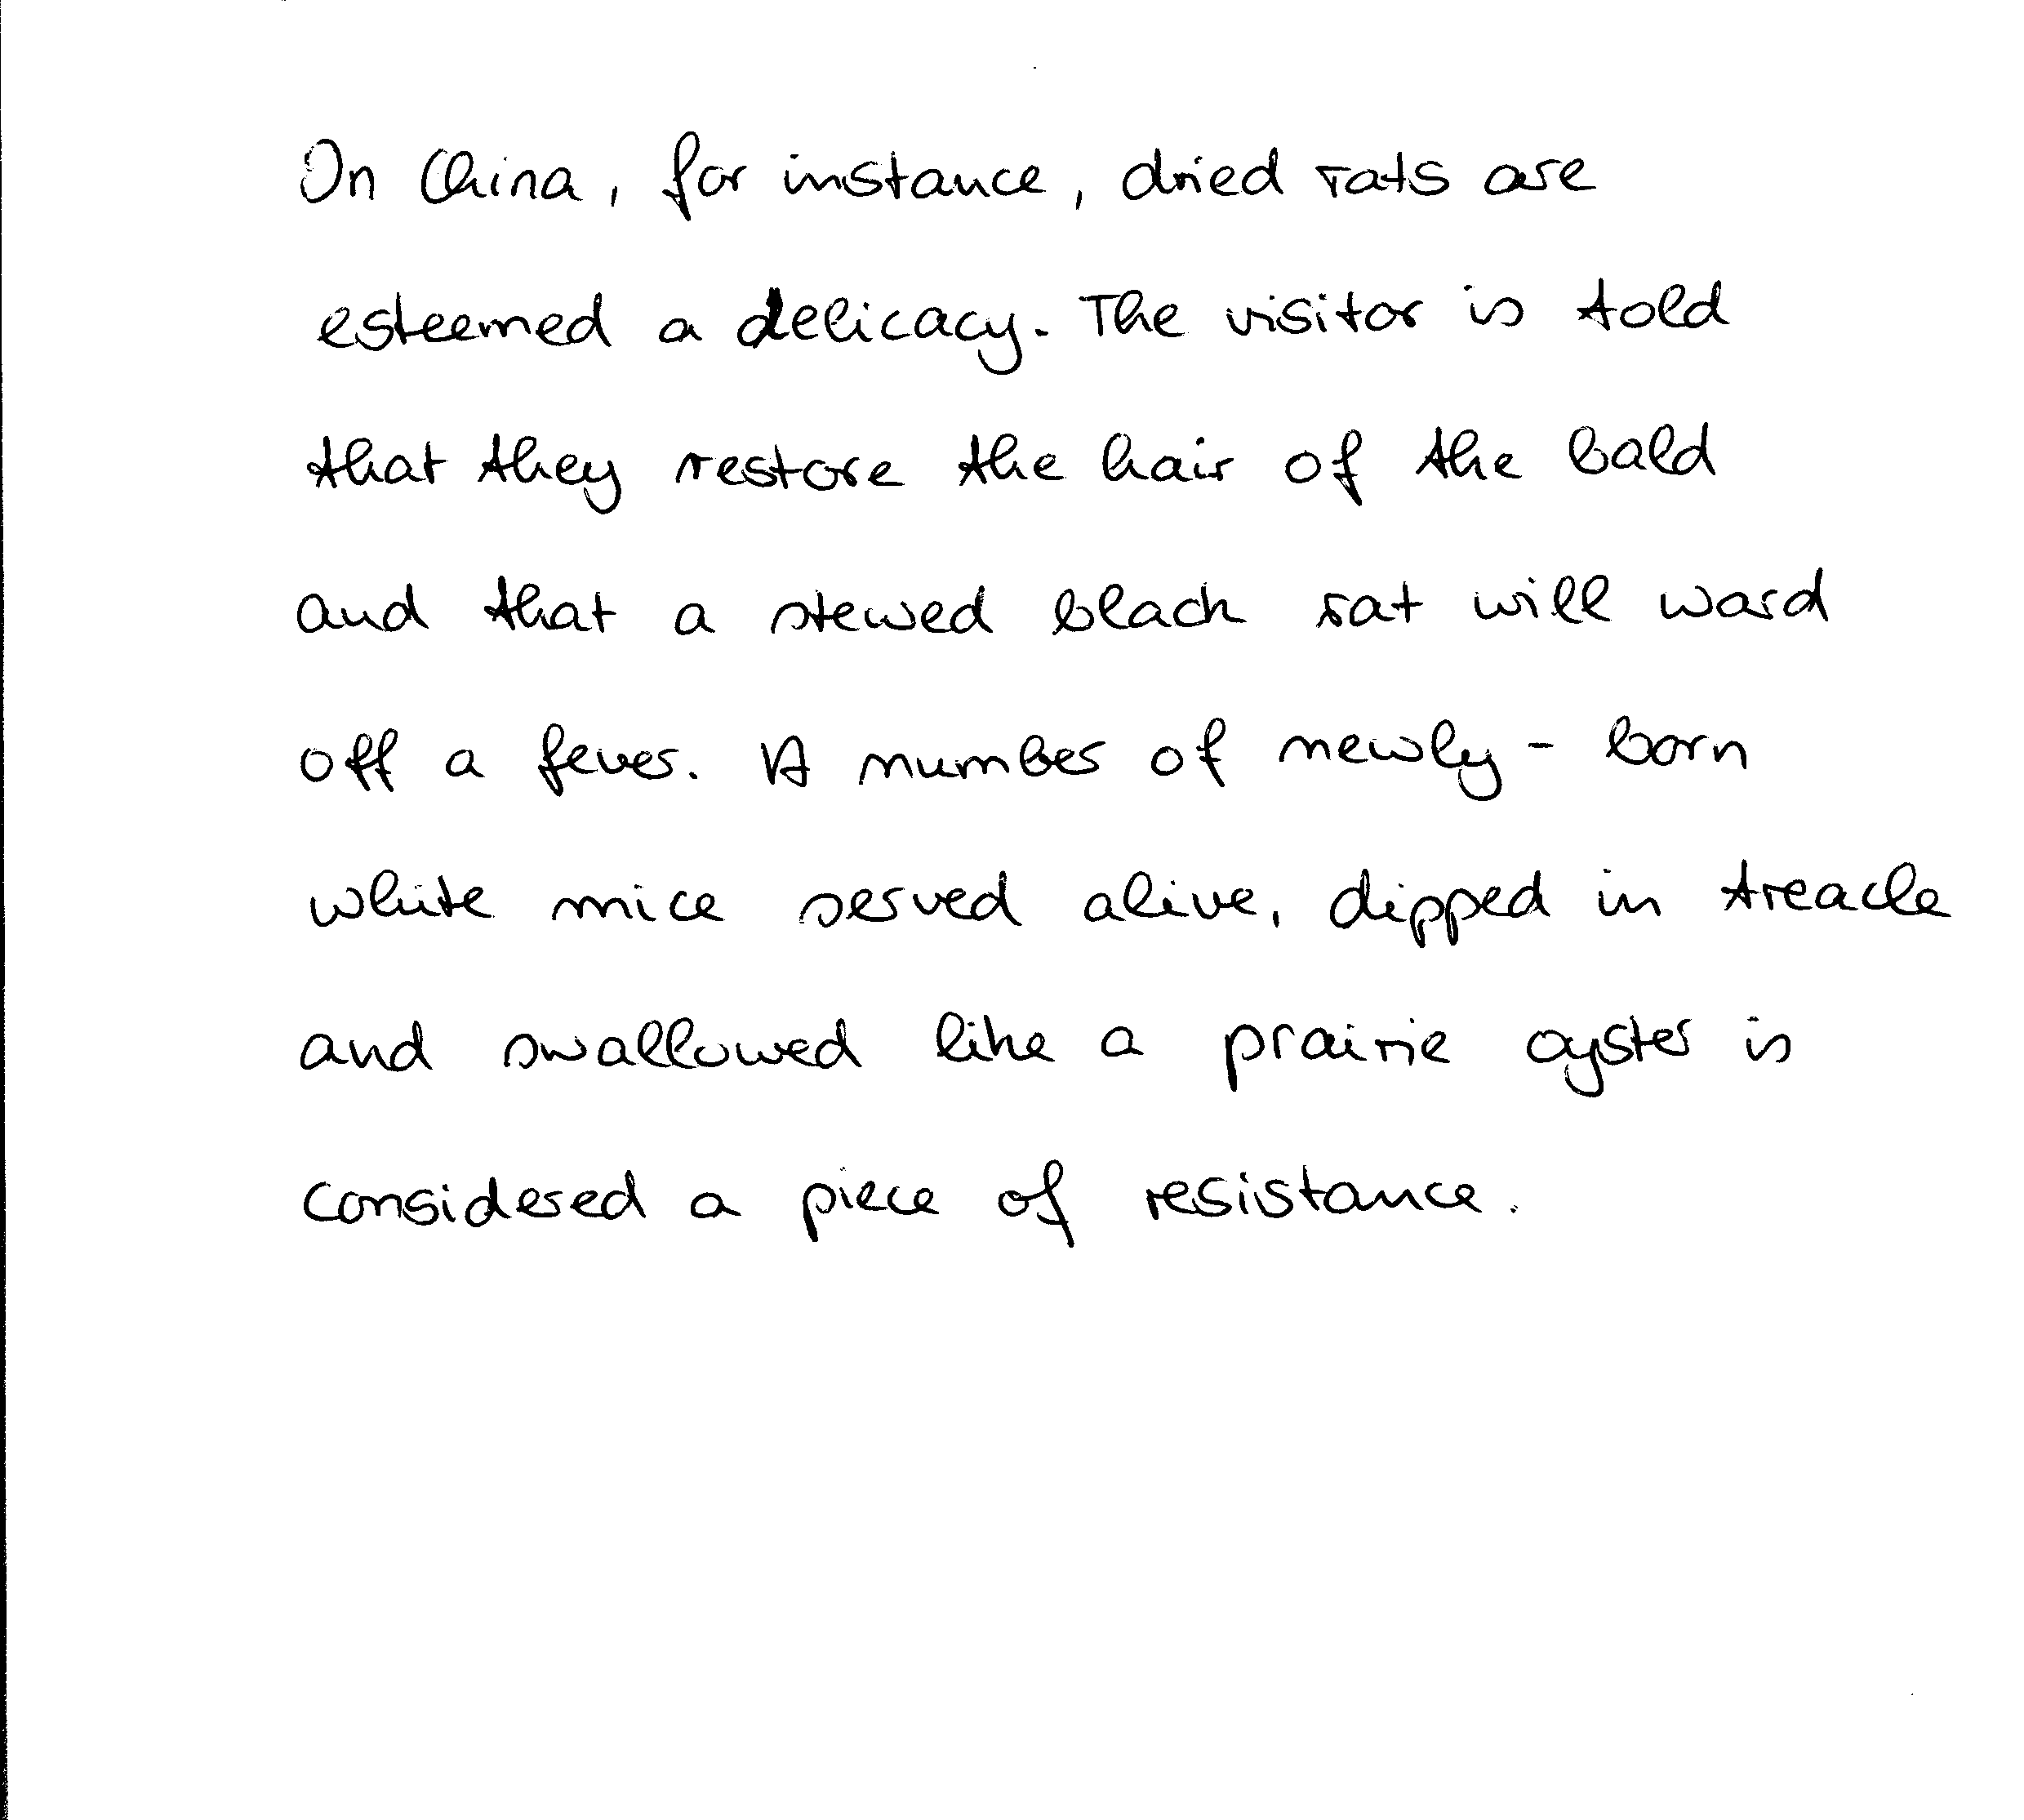 In China, for instance, dried rats are
esteemed a delicacy. The visitor is told
that they restore the hair of the bald
and that a stewed black rat will ward
off a fever. A number of newly - born
white mice served alive, dipped in treacle
and swallowed like a prairie oyster is
considered a piece of resistance.